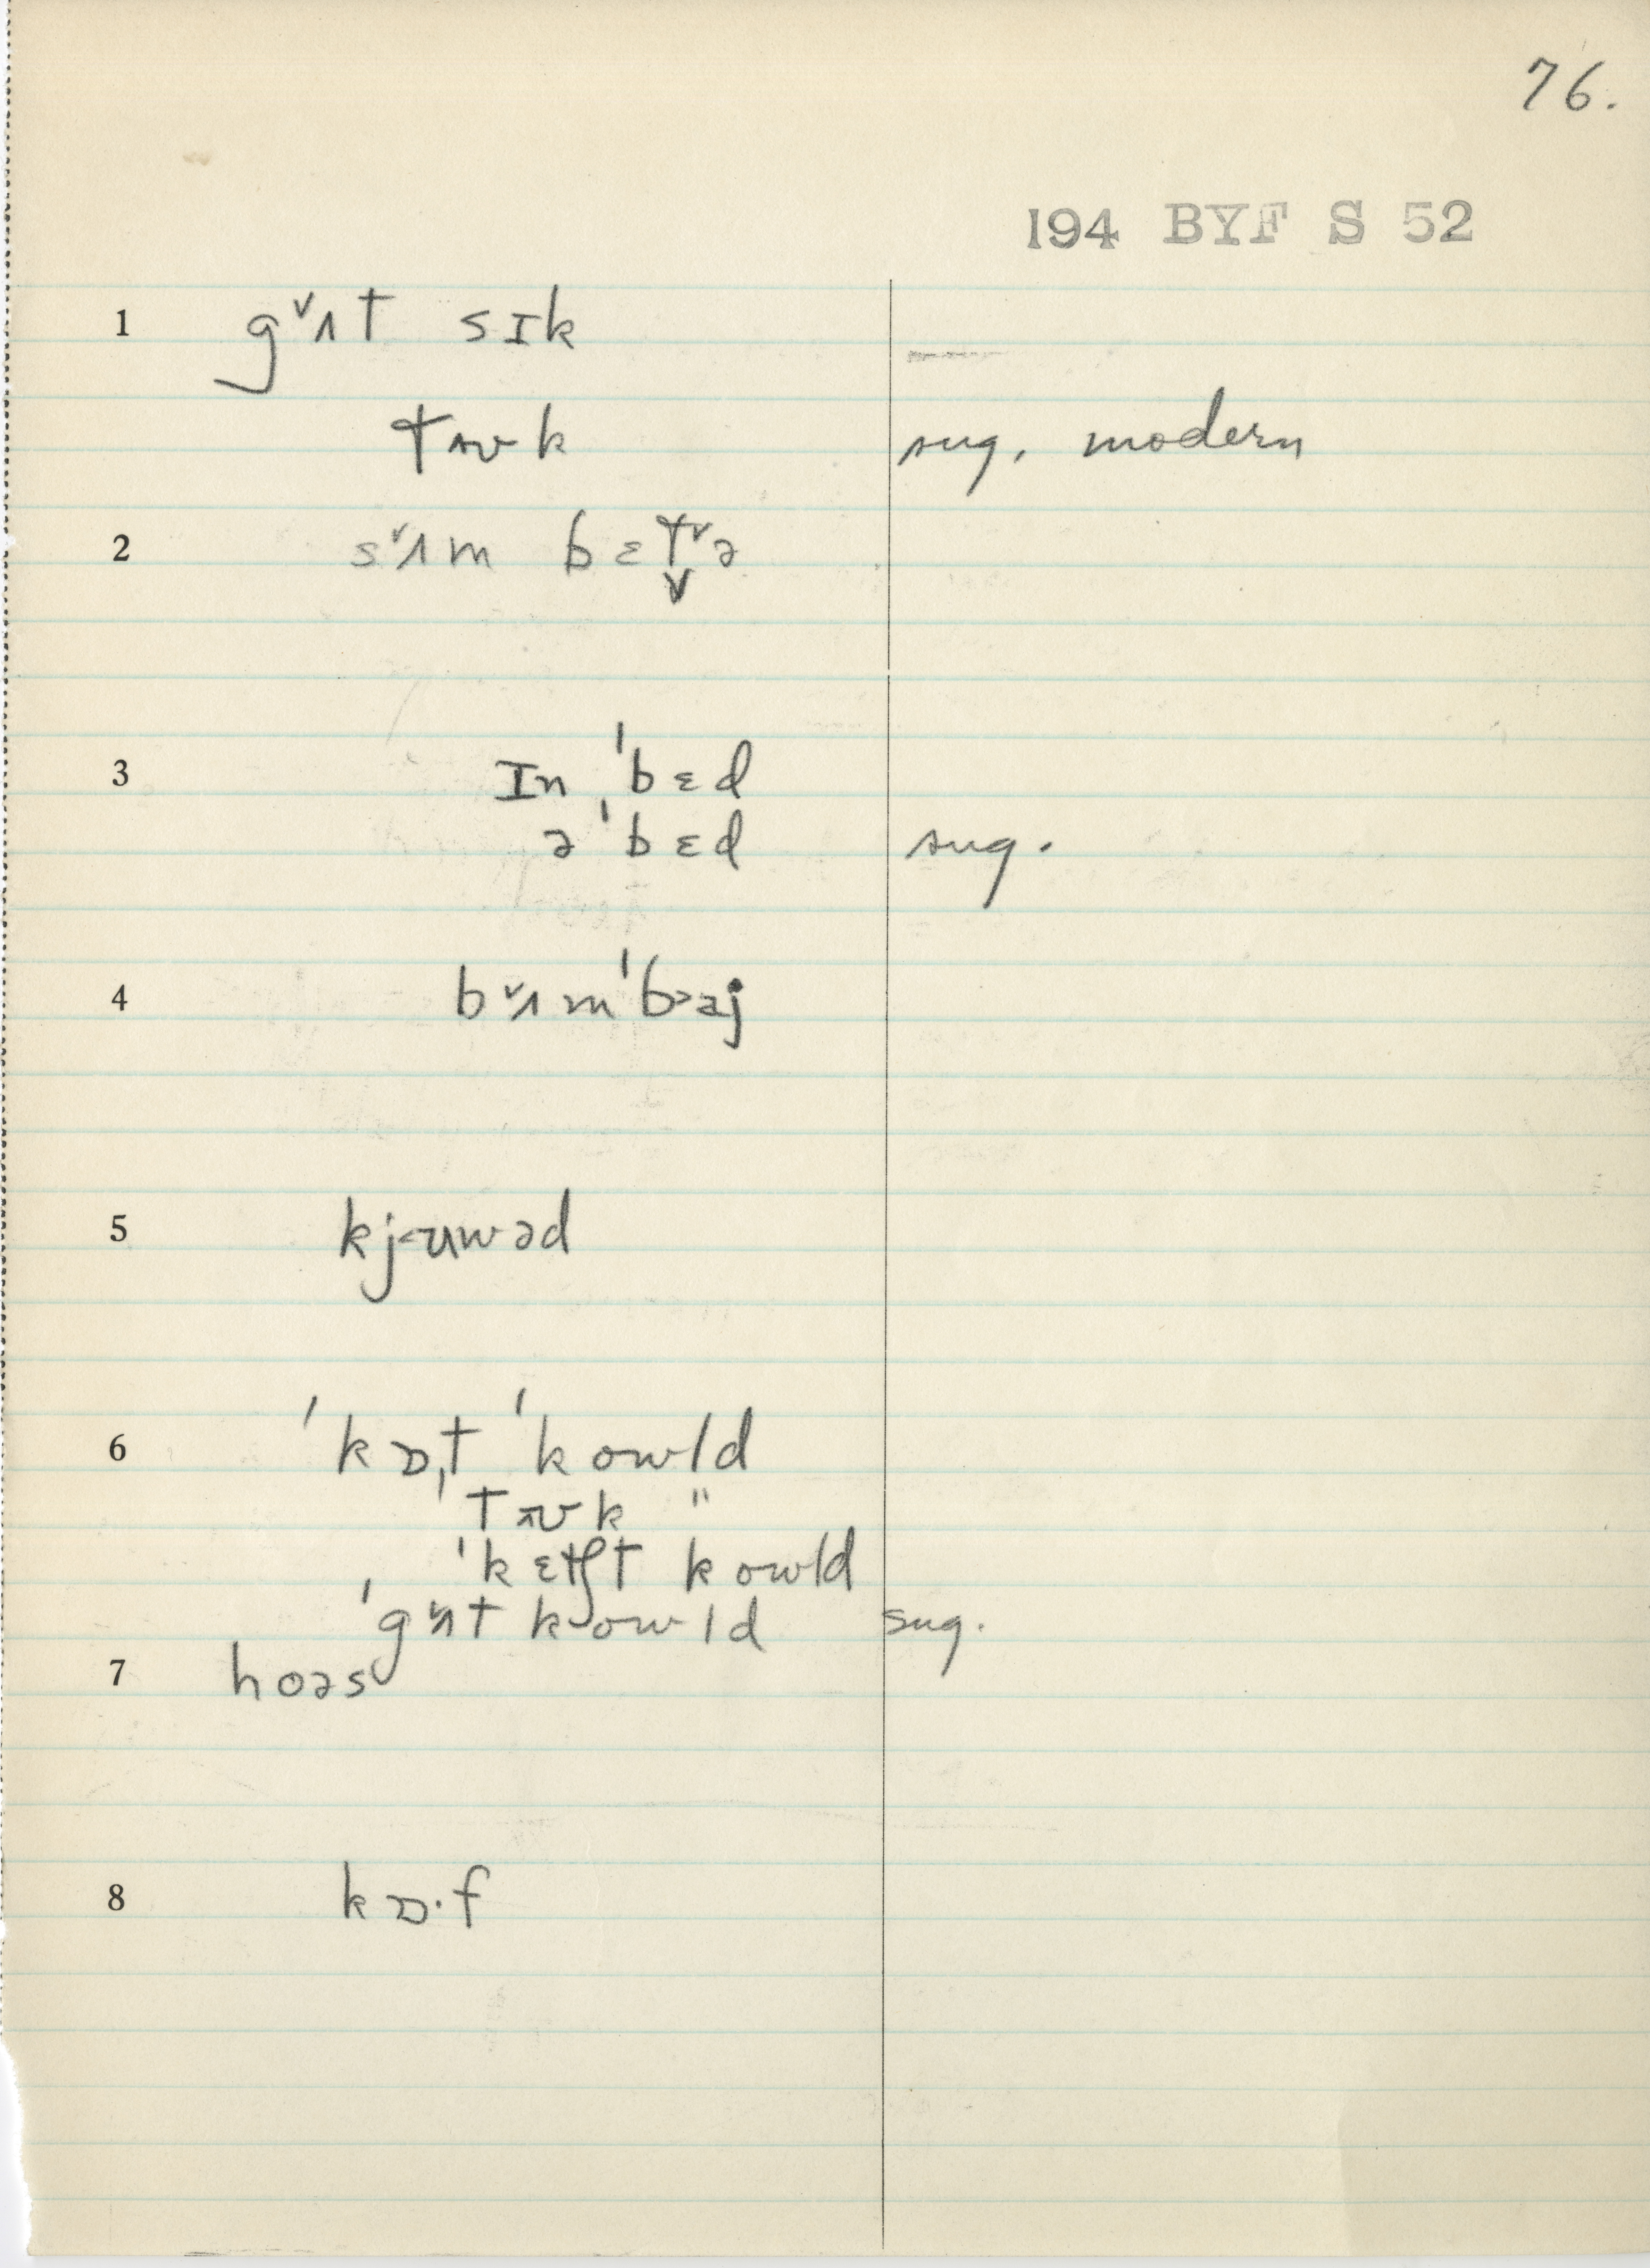 76.
194 BYF S 52
1 gᵛʌt sɪk
tʌʊk sug. modern
2 sᵛʌm bɛt̬ᵛə
3 ɪn ˈbɛd
ə ˈbɛd sug.
4 bᵛʌmˈb>aj
5 kj<ʊwəd
6 ˈkɒ,t ˈkowld
ˈtʊk "
ˈkɛtʃt kowld
ˈgᵛʌt kowld sug.
7 hoəs
8 kɒ·f